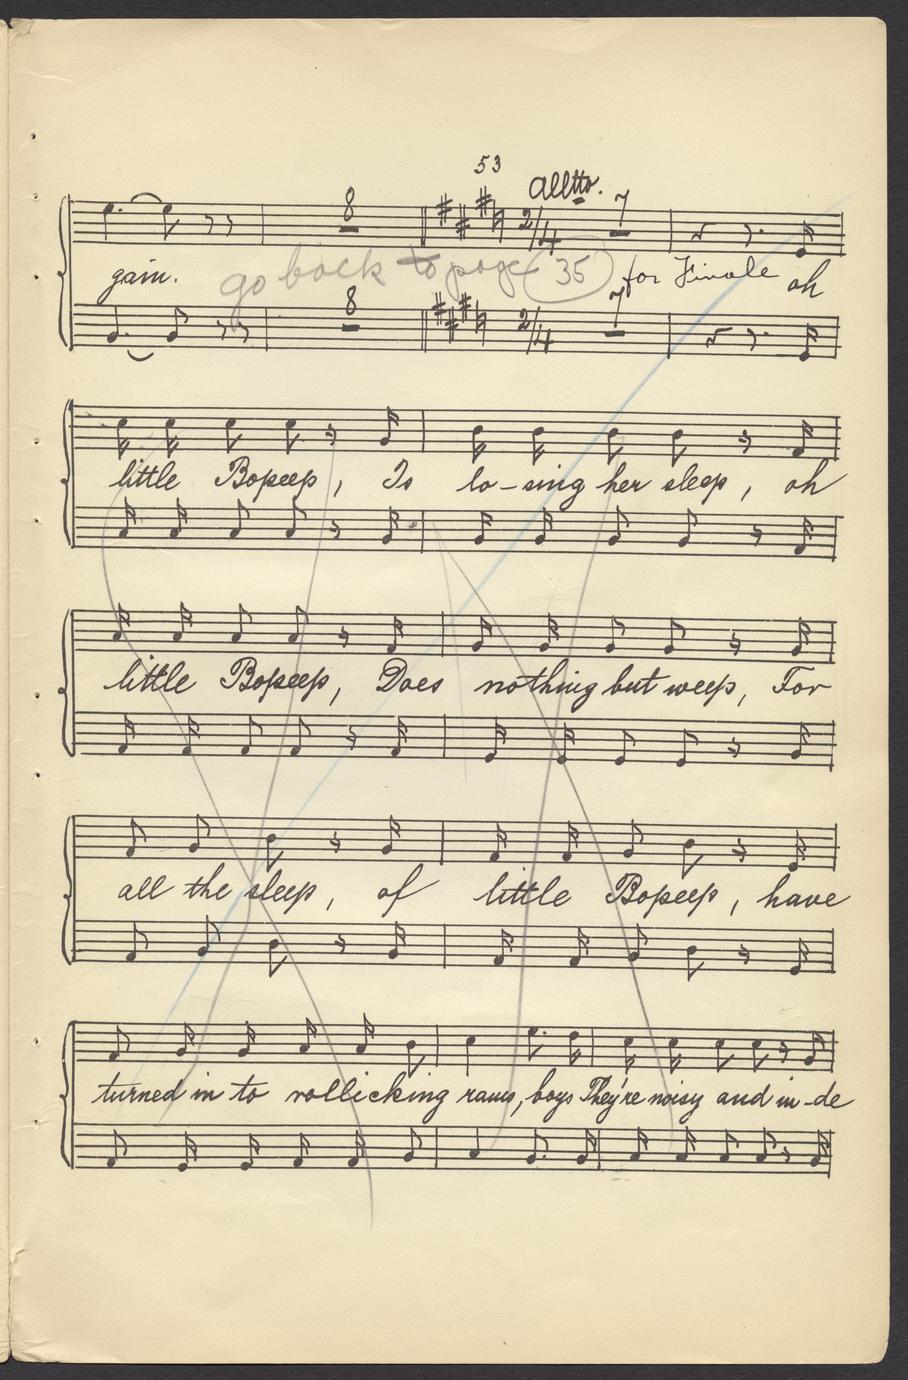 53
Alltto.
8 2/4 7
gain. go back to page 35 for Finale oh
8 2/4 7
little Bopeep, Is lo-sing her sleep, oh
little Bopeep, Does nothing but weep, For
all the sleep, of little Bopeep, have
turned in to rollicking rams, boys They're noisy and in-de